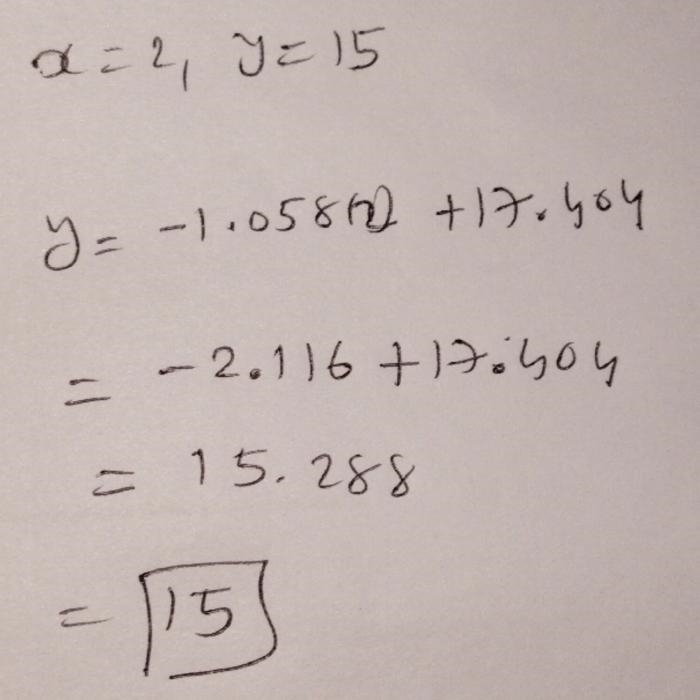 x = 2, y = 15
y = -1.058(2) + 17.404
= -2.116 + 17.404
= 15.288
= 15